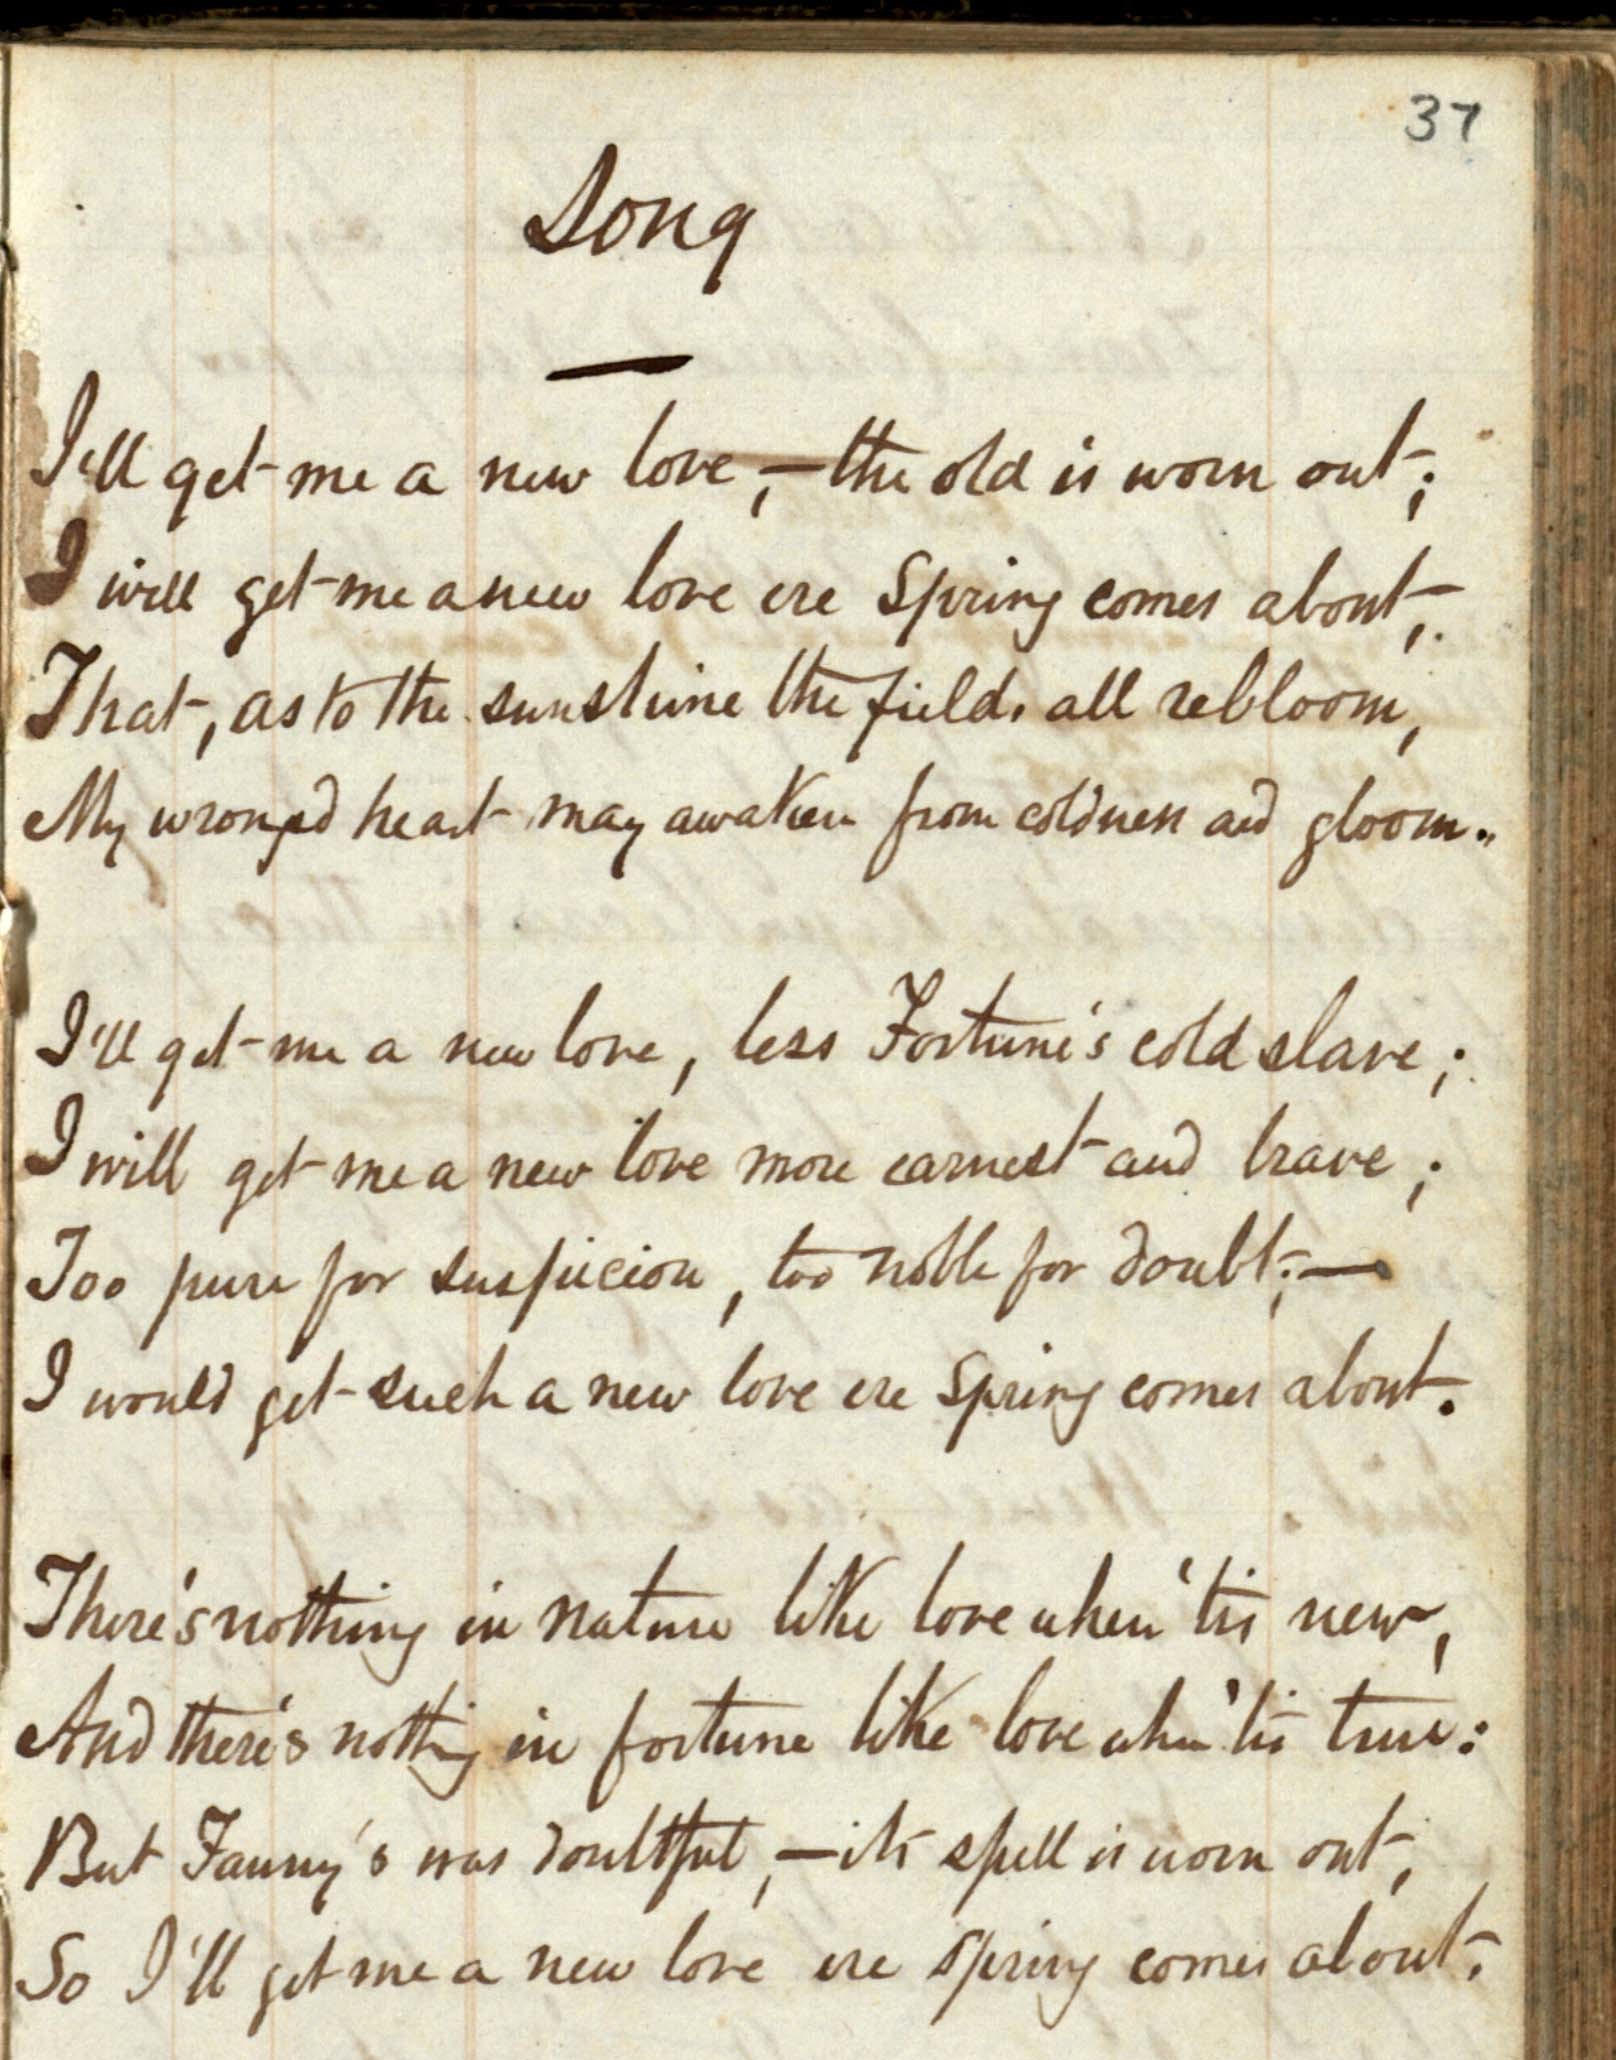 37
Song
I'll get me a new love,—the old is worn out;
I will get me a new love ere Spring comes about,
That, as to the sunshine the fields all rebloom,
My wronged heart may awaken from coldness and gloom.
I'll get me a new love, less Fortune's cold slave;
I will get me a new love more earnest and brave;
Too pure for suspicion, too noble for doubt;—
I would get such a new love ere Spring comes about.
There's nothing in nature like love when 'tis new,
And there's nothing in fortune like love when 'tis true:
But Fanny's was doubtful,—its spell is worn out,
So I'll get me a new love ere Spring comes about.